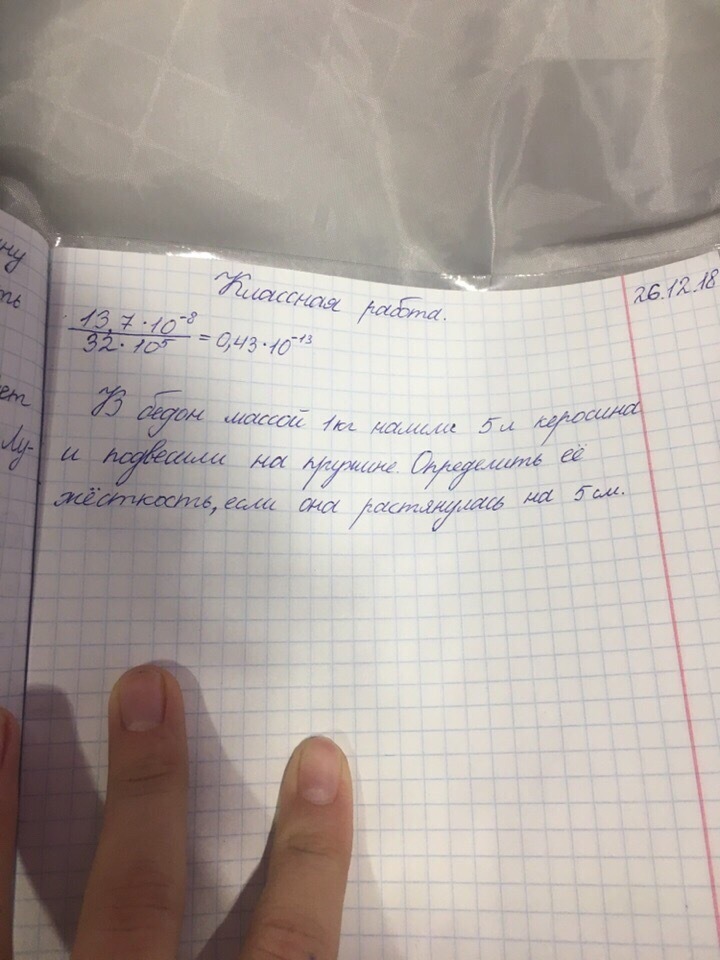 Классная работа.
26.12.18
13,7·10⁻⁸
32·10⁵
= 0,43·10⁻¹³
В бедон массой 1кг налили 5л керосина
и подвесили на пружине. Определить её
жёсткость, если она растянулась на 5см.